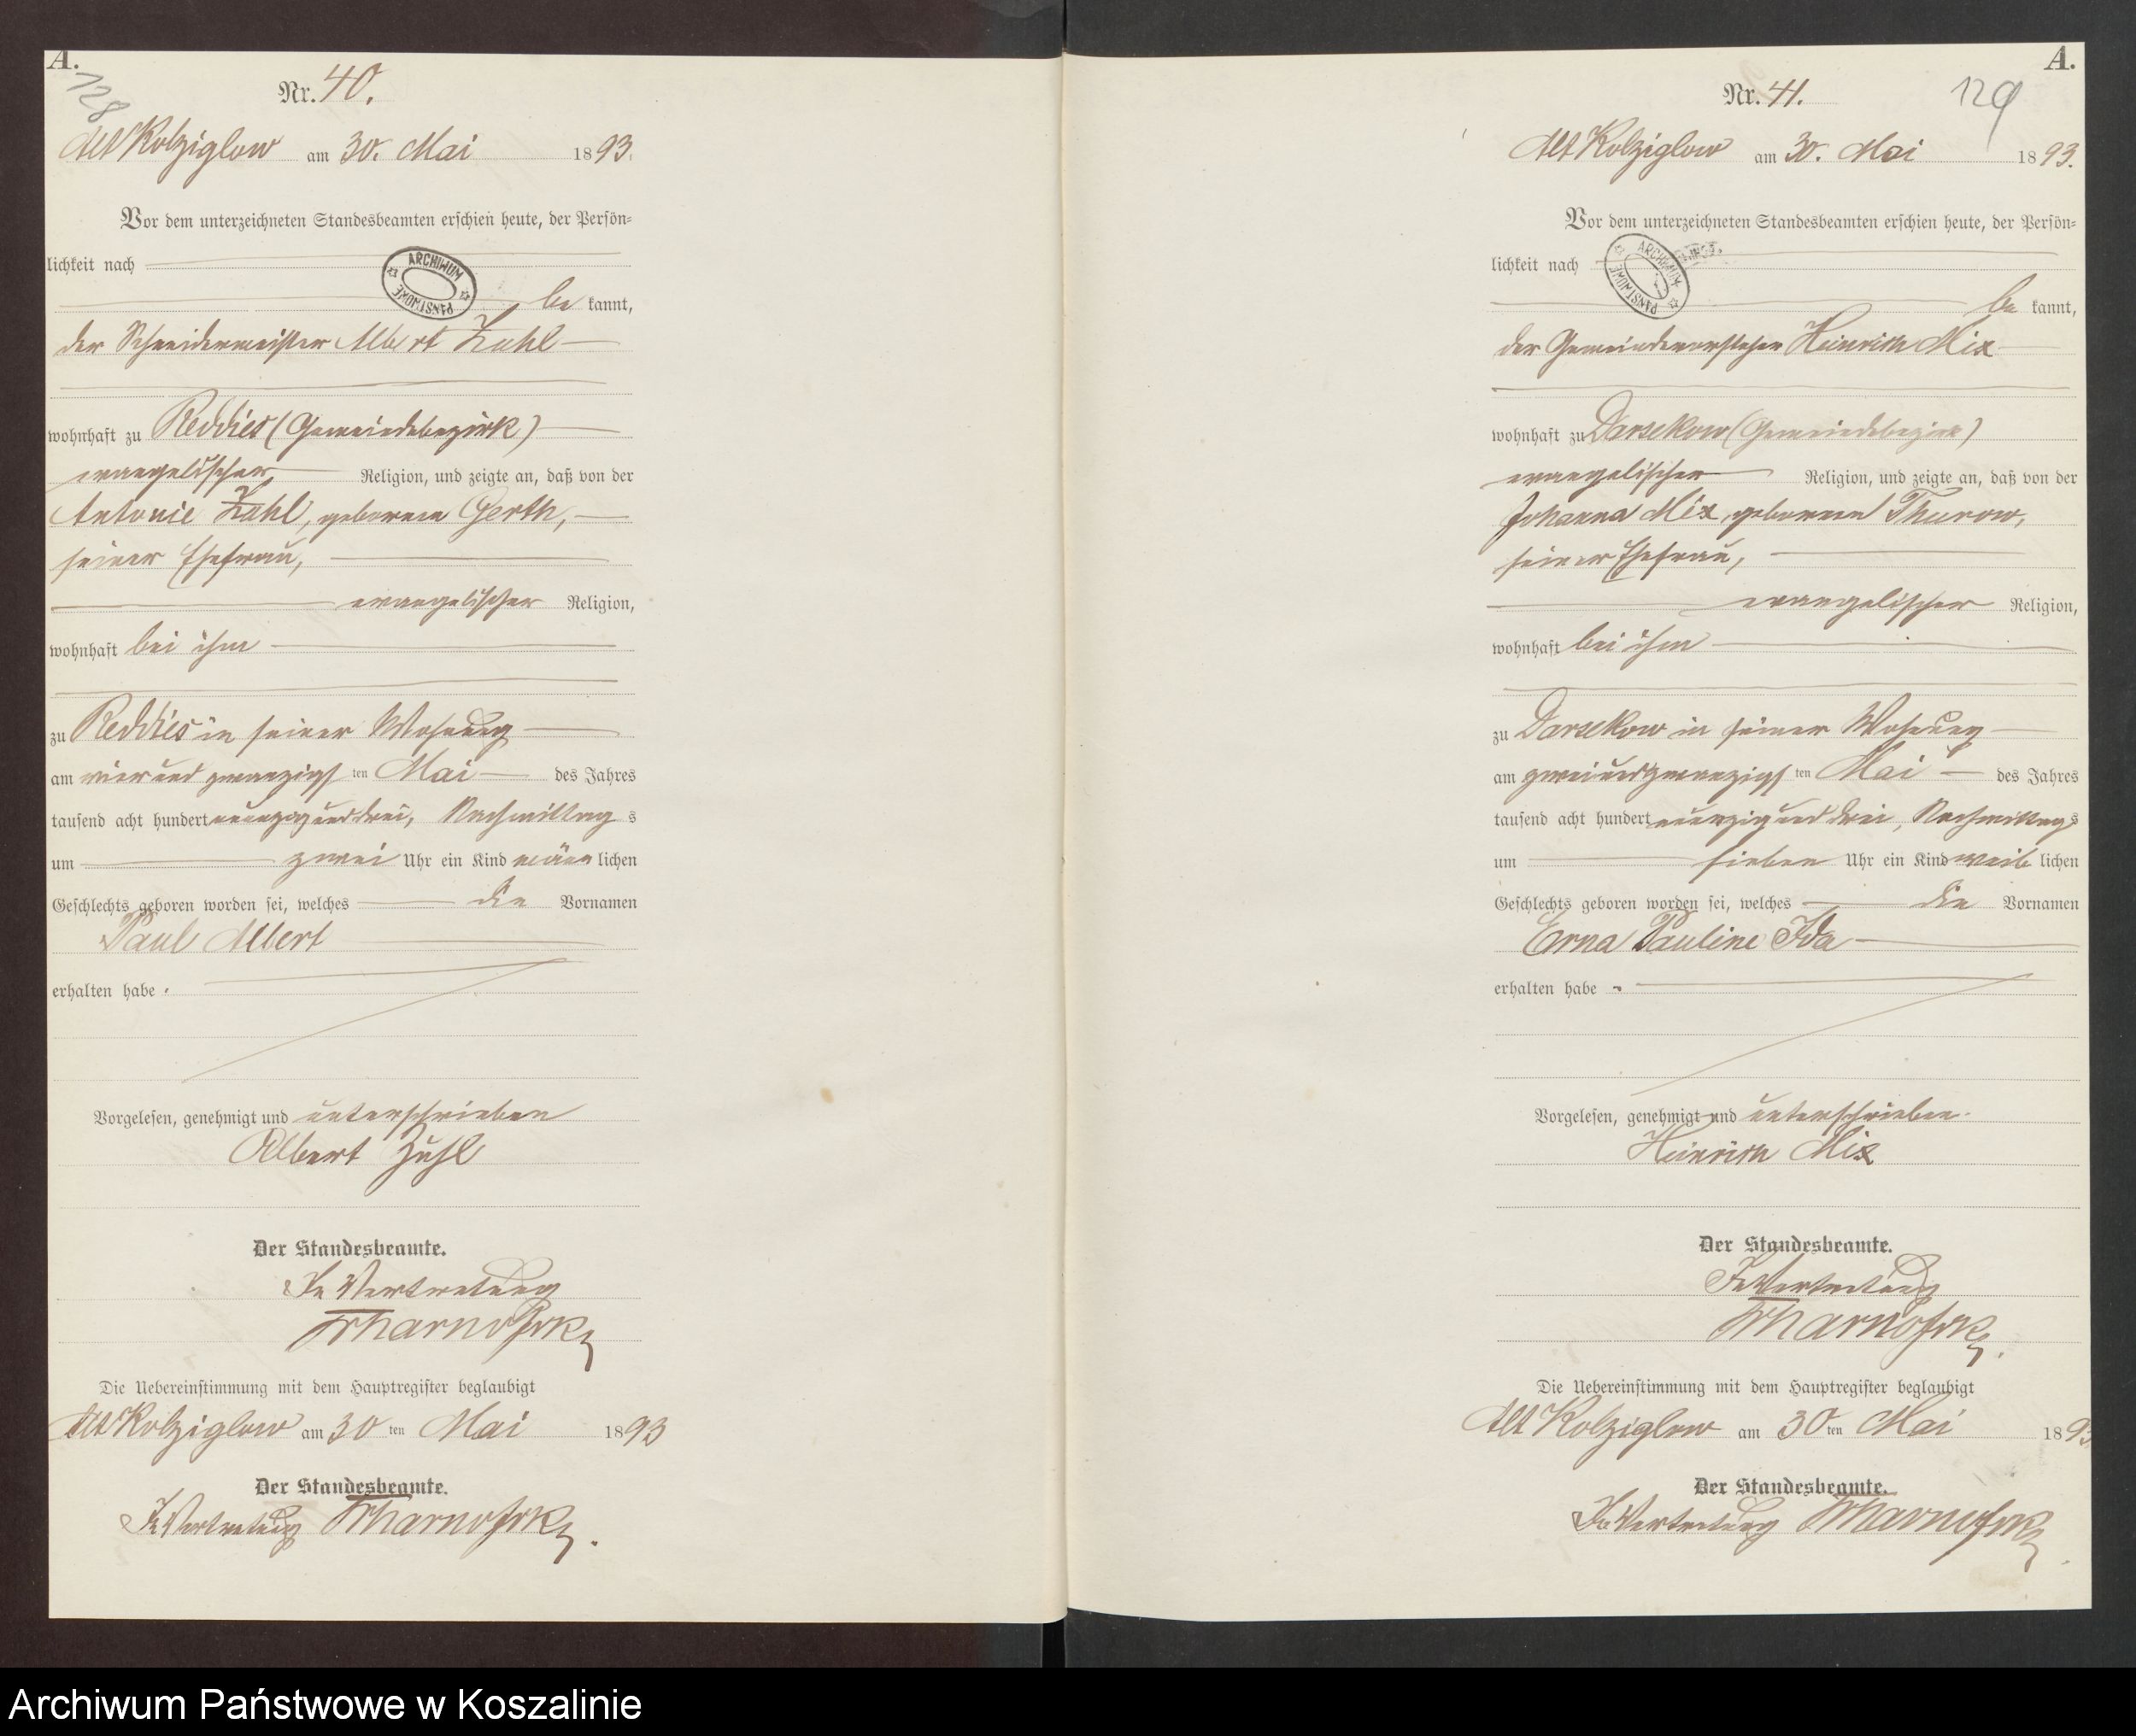 A.
128
Nr. 40.
Alt Kolziglow am 30. Mai 1893.
Vor dem unterzeichneten Standesbeamten erschien heute, der Persön=
lichkeit nach
ARCHIWUM PAŃSTWOWE
be kannt,
der Schneidermeister Albert Zuhl
wohnhaft zu Reddies (Gemeindebezirk)
evangelischer Religion, und zeigte an, daß von der
Antonie Zuhl, geborenen Gerth,
seiner Ehefrau,
evangelischer Religion,
wohnhaft bei ihm
zu Reddies in seiner Wohnung
am vier und zwanzigs ten Mai des Jahres
tausend acht hundert neunzig und drei, Nachmittag s
um zwei Uhr ein Kind männ lichen
Geschlechts geboren worden sei, welches die Vornamen
Paul Albert
erhalten habe.
Vorgelesen, genehmigt und unterschrieben
Albert Zuhl
Der Standesbeamte.
In Vertretung
Die Uebereinstimmung mit dem Hauptregister beglaubigt
Alt Kolziglow am 30 ten Mai 1893
Der Standesbeamte.
In Vertretung
A.
129
Nr. 41.
Alt Kolziglow am 30. Mai 1893.
Vor dem unterzeichneten Standesbeamten erschien heute, der Persön=
lichkeit nach
ARCHIWUM PAŃSTWOWE
be kannt,
der Gemeindevorsteher Heinrich Mix
wohnhaft zu Darsekow (Gemeindebezirk)
evangelischer Religion, und zeigte an, daß von der
Johanna Mix, geborenen Thurow,
seiner Ehefrau,
evangelischer Religion,
wohnhaft bei ihm
zu Darsekow in seiner Wohnung
am zwei und zwanzigs ten Mai des Jahres
tausend acht hundert neunzig und drei, Nachmittag s
um sieben Uhr ein Kind weib lichen
Geschlechts geboren worden sei, welches die Vornamen
Erna Pauline Ida
erhalten habe.
Vorgelesen, genehmigt und unterschrieben.
Heinrich Mix
Der Standesbeamte.
In Vertretung
Die Uebereinstimmung mit dem Hauptregister beglaubigt
Alt Kolziglow am 30 ten Mai 1893.
Der Standesbeamte.
In Vertretung
Archiwum Państwowe w Koszalinie